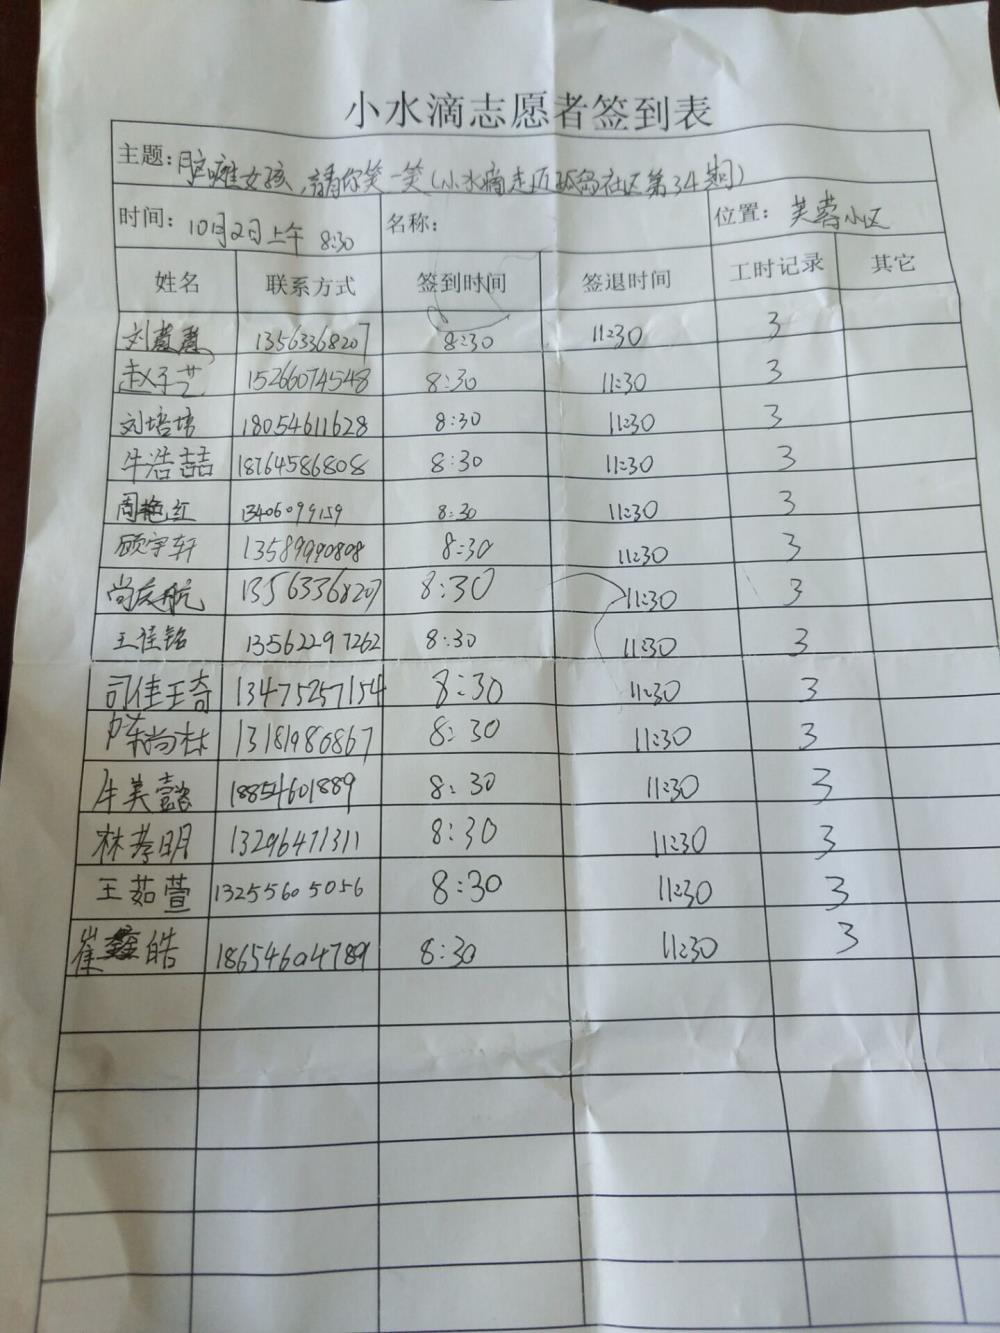 小水滴志愿者签到表
主题：脑瘫女孩，请你笑一笑（小水滴走近孤岛社区第34期）
时间：10月2日上午 8:30 名称： 位置：芙蓉小区
姓名 联系方式 签到时间 签退时间 工时记录 其它
刘慧慧 13563368207 8:30 11:30 3
赵子艺 15266074548 8:30 11:30 3
刘培培 18054611628 8:30 11:30 3
牛浩喆 18764586808 8:30 11:30 3
周艳红 13406099159 8:30 11:30 3
顾宇轩 13589990808 8:30 11:30 3
尚友航 13563368207 8:30 11:30 3
王佳铭 13562297262 8:30 11:30 3
司佳琦 13475257154 8:30 11:30 3
陈尚林 13181980867 8:30 11:30 3
牛美懿 18854601889 8:30 11:30 3
林孝明 13296471311 8:30 11:30 3
王茹萱 13255605056 8:30 11:30 3
崔鑫皓 18654604789 8:30 11:30 3